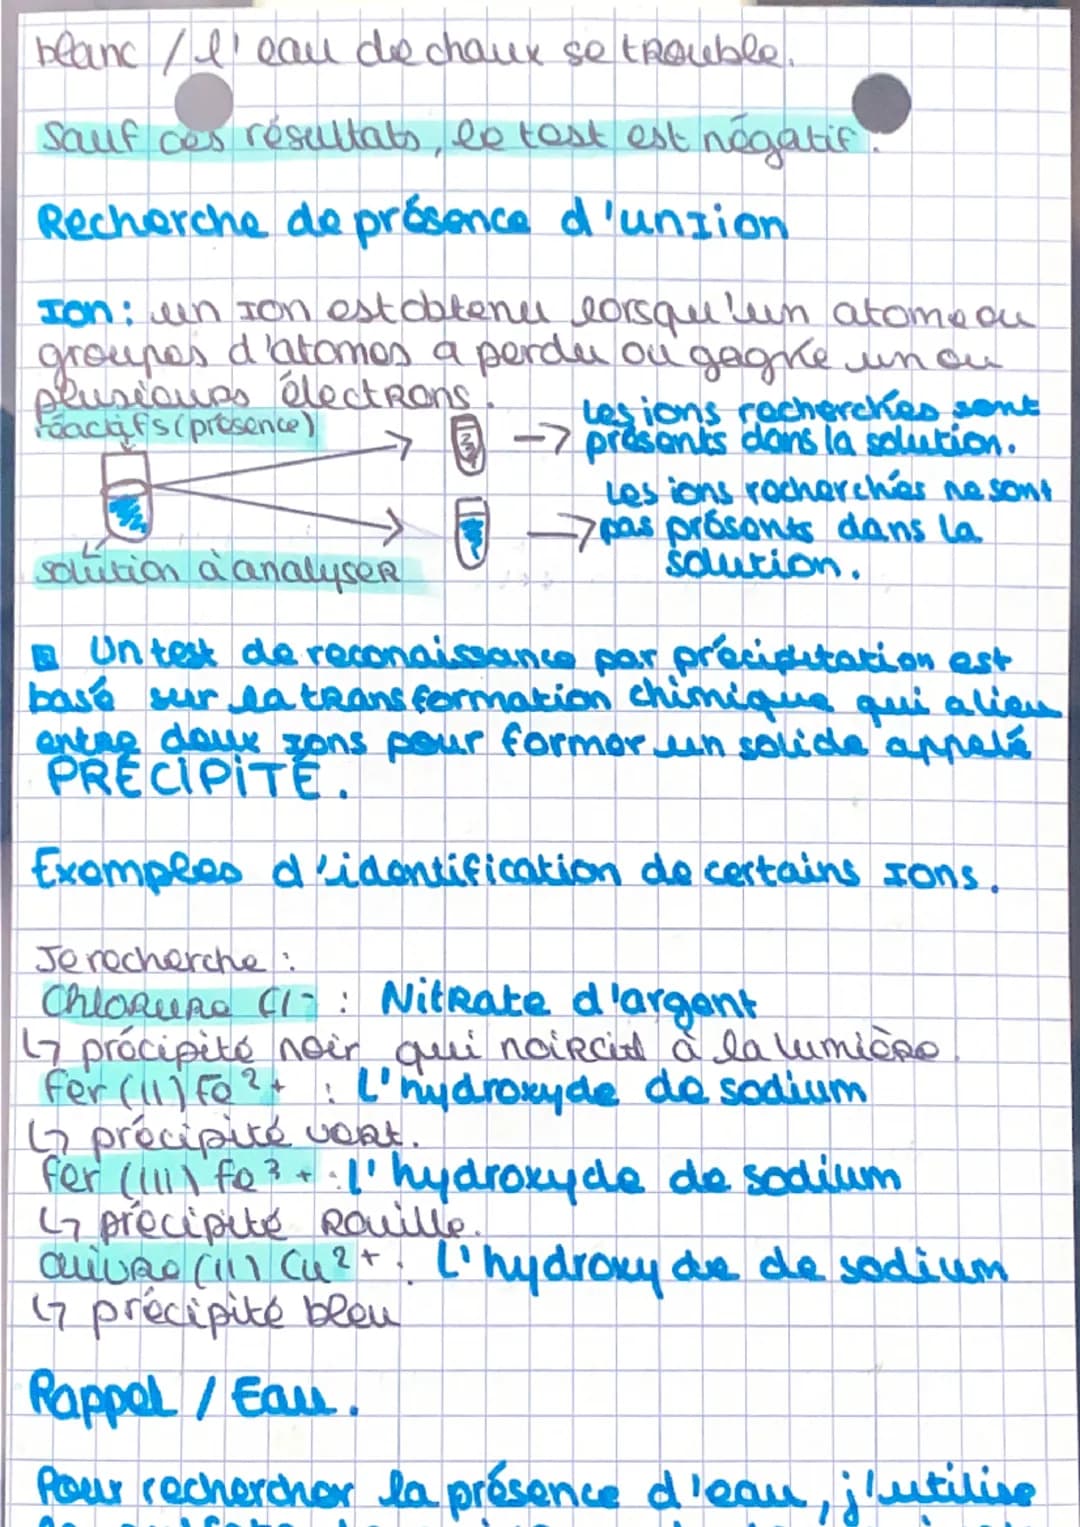 blanc / l'eau de chaux se trouble.
Sauf ces résultats, le test est négatif.
Recherche de présence d'un Iion
Ion : un Ion est obtenu lorsqu'un atome ou
groupes d'atomes a perdu ou gagnée un ou
plusieurs électrons.
réactifs (présence)
Les ions recherchés sont
présents dans la solution.
Les ions recherchés ne sont
pas présents dans la
solution.
solution à analyser
Un test de reconaissance par précipitation est
basé sur la transformation chimique qui a lieu
entre deux ions pour former un solide appelé
PRÉCIPITÉ.
Exemples d'identification de certains Ions.
Je recherche :
Chlorure Cl- : Nitrate d'argent
↳ précipité noir qui noircit à la lumière.
fer (II) Fe2+ : L'hydroxyde de sodium
↳ précipité vert.
fer (III) fe3+ : l'hydroxyde de sodium
↳ précipité Rouille.
cuivre (II) Cu2+ : L'hydroxyde de sodium
↳ précipité bleu
Rappel / Eau.
Pour rechercher la présence d'eau, j'utilise